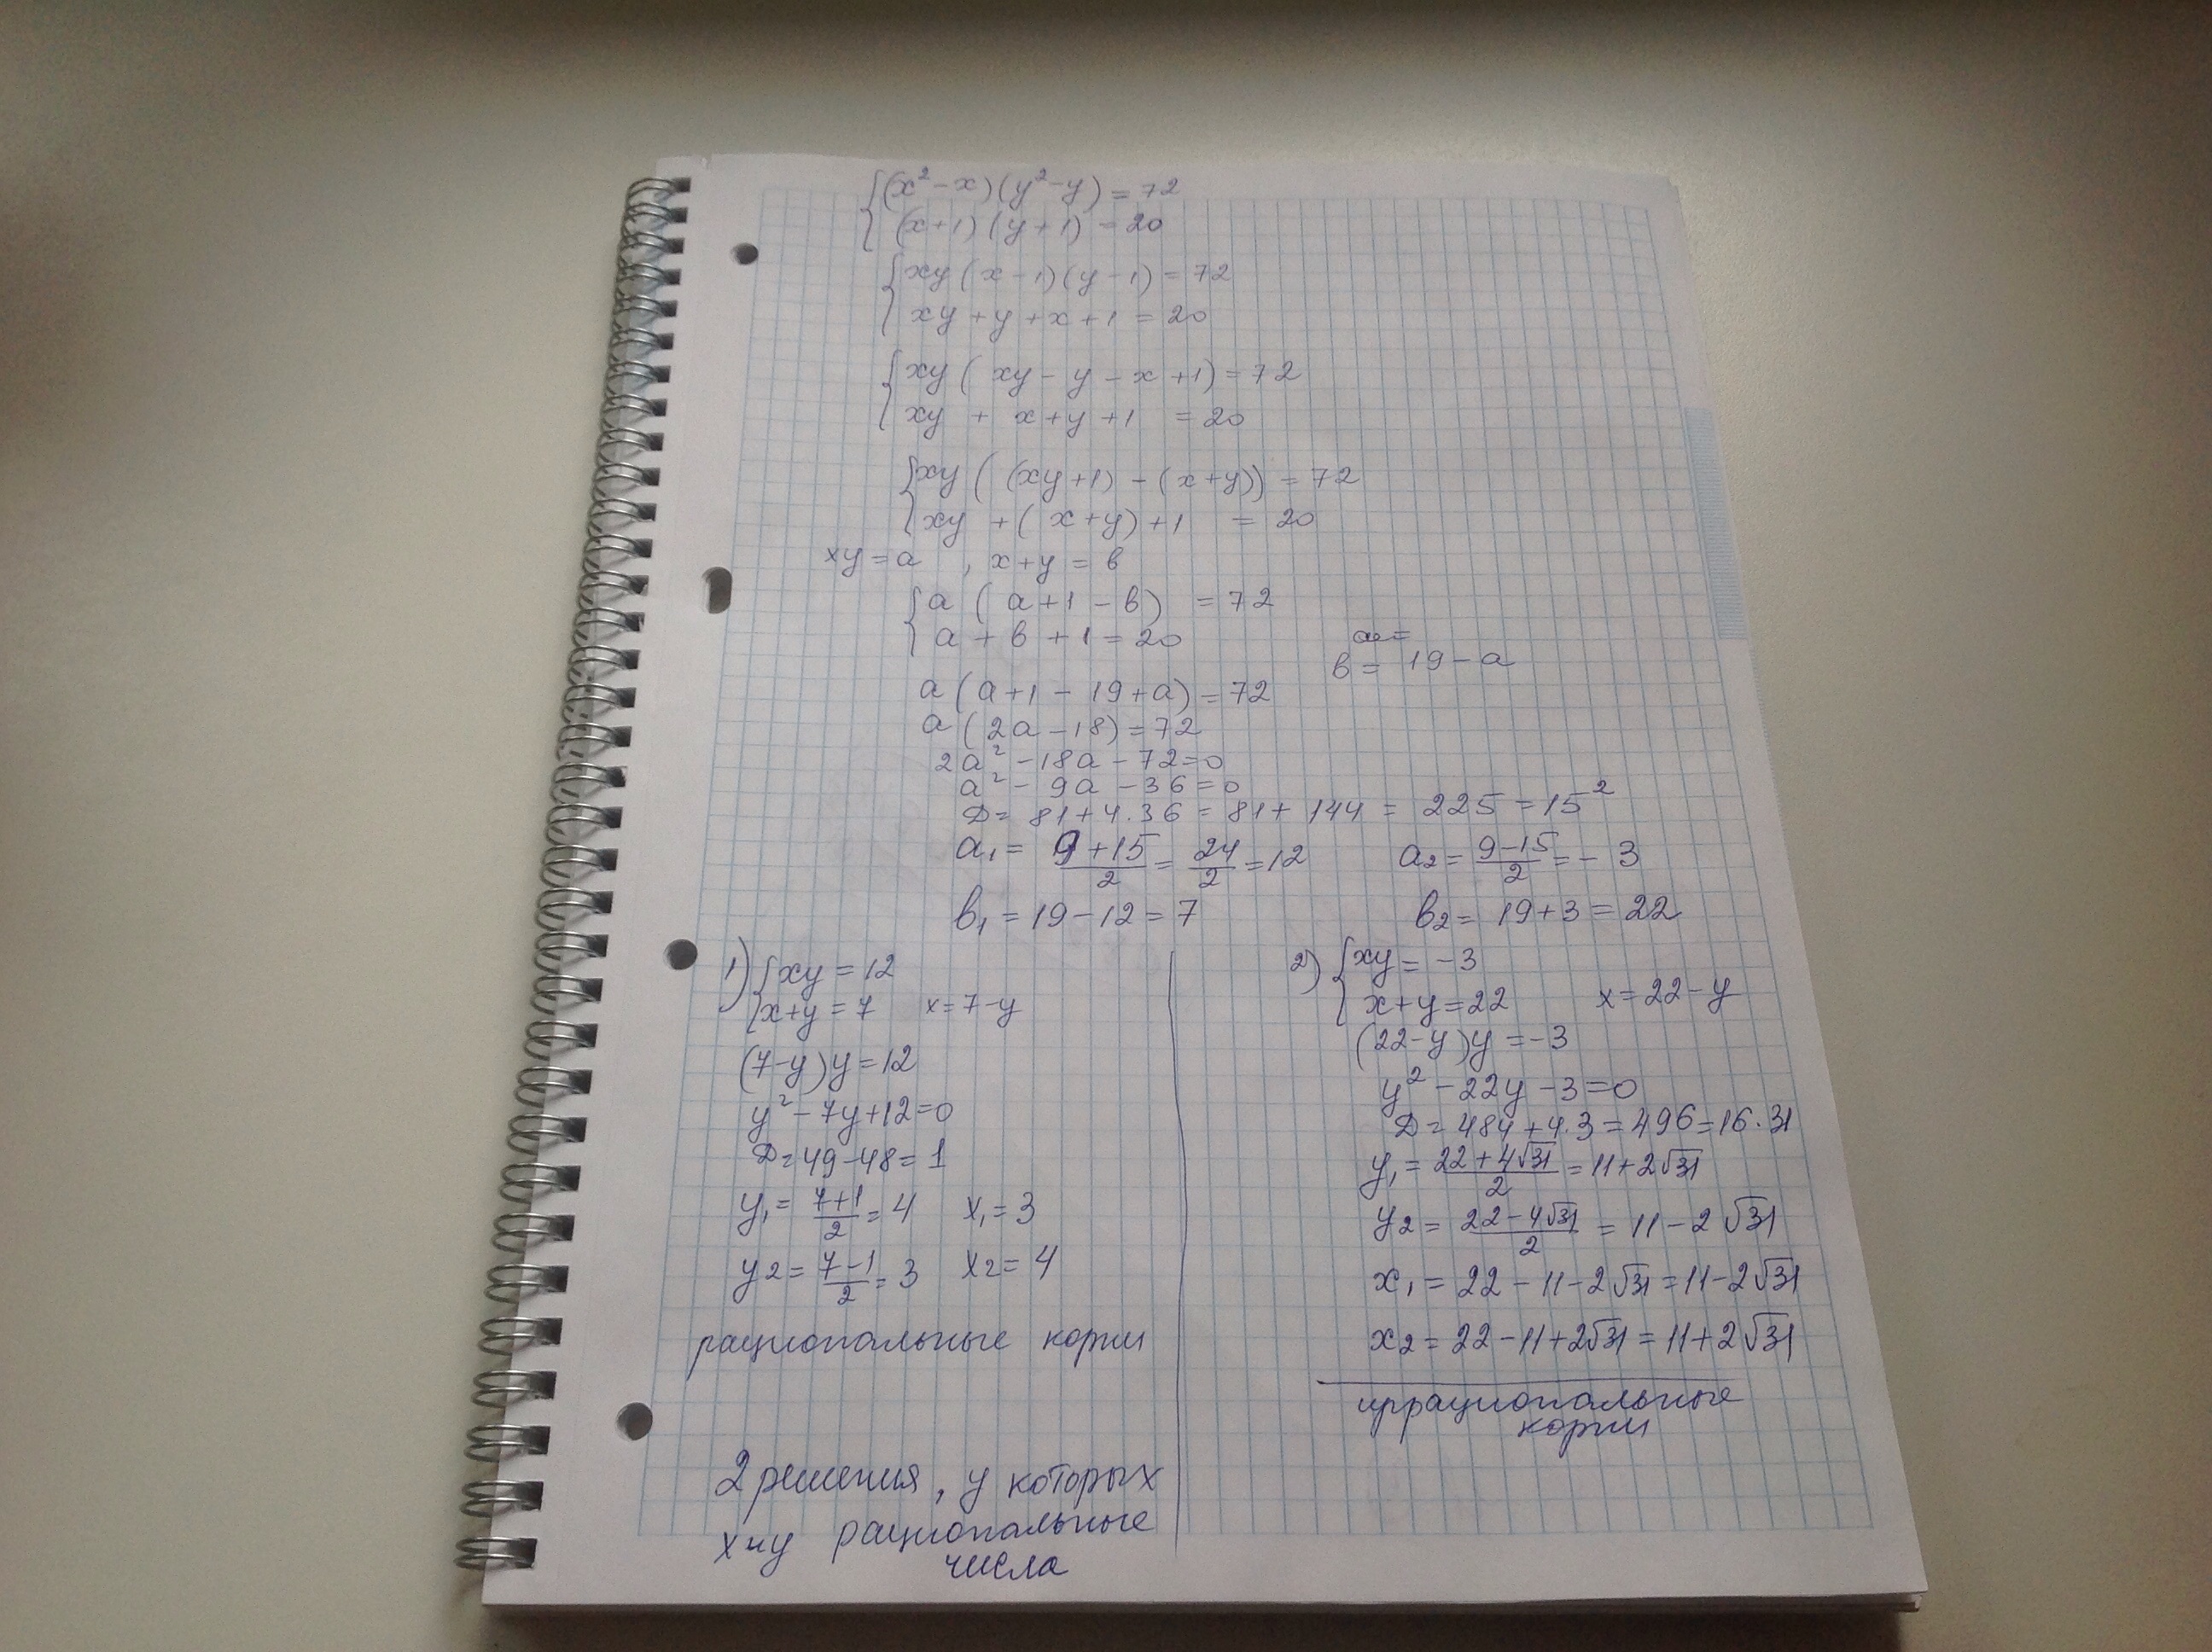 {(x² - x)(y² - y) = 72
(x+1)(y+1) = 20
{xy(x-1)(y-1) = 72
xy + y + x + 1 = 20
{xy(xy - y - x + 1) = 72
xy + x + y + 1 = 20
{xy((xy+1) - (x+y)) = 72
xy + (x+y) + 1 = 20
xy = a , x+y = в
{a(a+1-в) = 72
a + в + 1 = 20
в = 19 - a
a(a+1-19+a) = 72
a(2a-18) = 72
2a² - 18a - 72 = 0
a² - 9a - 36 = 0
D = 81 + 4·36 = 81 + 144 = 225 = 15²
a₁ = (9+15)/2 = 24/2 = 12 a₂ = (9-15)/2 = -3
в₁ = 19 - 12 = 7 в₂ = 19 + 3 = 22
1) {xy = 12
x+y = 7 x = 7-y
(7-y)y = 12
y² - 7y + 12 = 0
D = 49 - 48 = 1
y₁ = (7+1)/2 = 4 x₁ = 3
y₂ = (7-1)/2 = 3 x₂ = 4
рациональные корни
2 решения, у которых
x и y рациональные
числа
2) {xy = -3
x+y = 22 x = 22-y
(22-y)y = -3
y² - 22y - 3 = 0
D = 484 + 4·3 = 496 = 16·31
y₁ = (22+4√31)/2 = 11+2√31
y₂ = (22-4√31)/2 = 11-2√31
x₁ = 22-11-2√31 = 11-2√31
x₂ = 22-11+2√31 = 11+2√31
иррациональные
корни